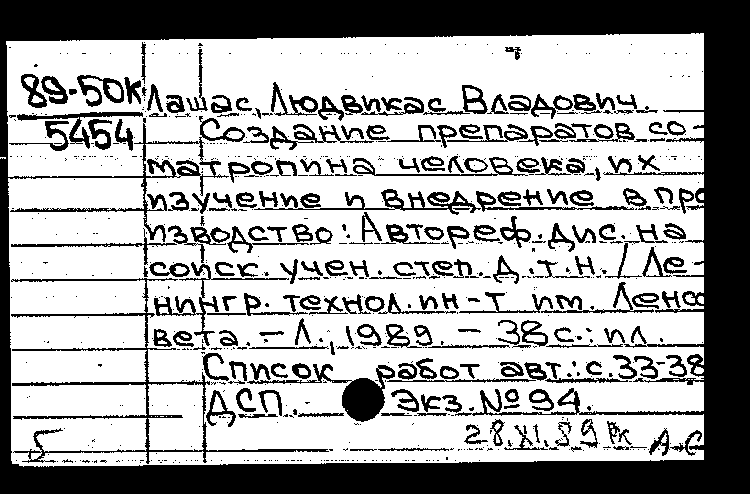 89-50К
5454
Лашас, Людвикас Владович.
Создание препаратов со-
матропина человека, их
изучение и внедрение в про
изводство: Автореф. дис. на
соиск. учен. степ. д.т.н. / Ле-
нингр. технол. ин-т им. Ленсо
вета. — Л., 1989. — 38 с.: ил.
Список работ авт.: с. 33-38
ДСП. Экз. № 94.
28.XI.89
А-С
5